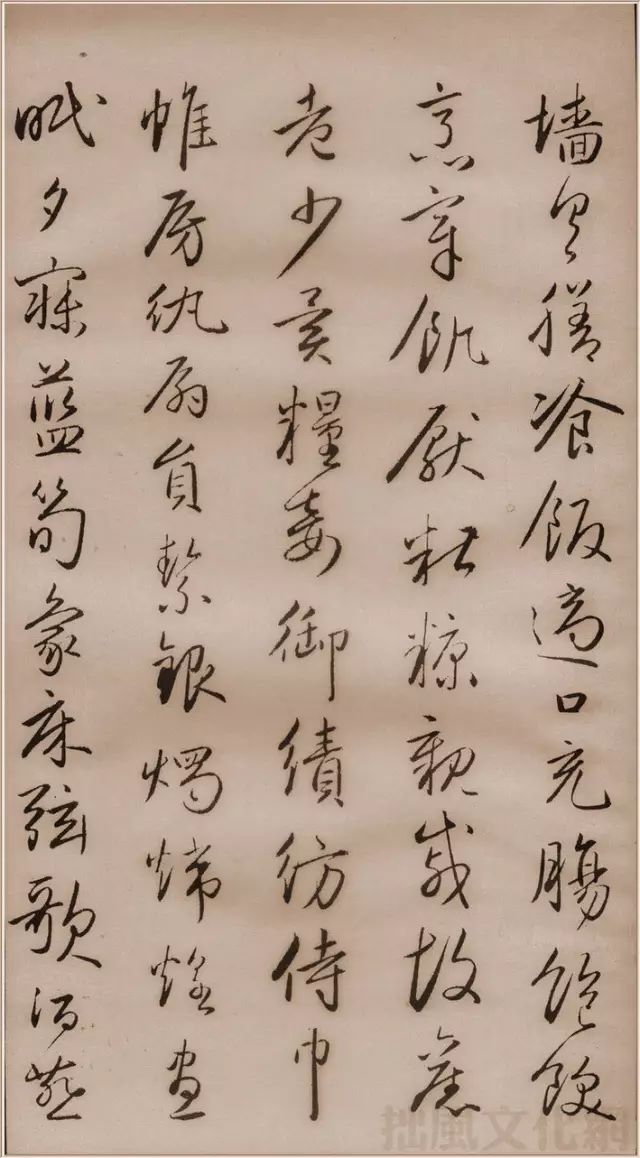 墙具膳飡飯適口充腸飽飫
烹宰飢厭糟糠親戚故舊
老少異糧妾御績紡侍巾
帷房紈扇員絜銀燭煒煌晝
眠夕寐藍筍象床弦歌酒讌
拙風文化網